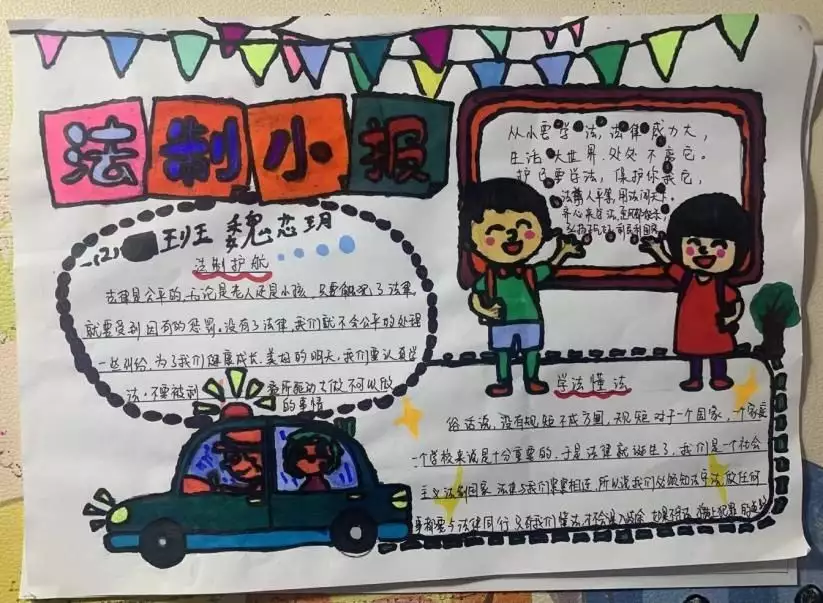 法制小报
一(2)班 魏芯玥
法制护航
法律是公平的,无论是老人还是小孩,只要触犯了法律,
就要受到因有的惩罚。没有了法律,我们就不会公平的处理
一些纠纷,为了我们健康成长,美好的明天,我们要认真学
法,不要被利 所驱动去做不可以做
的事情
从小要学法,法律威力大,
生活大世界,处处不离它。
护己要学法,保护你我它,
法律人平等,用法闯天下。
齐心来学法
学法懂法
俗话说,没有规矩不成方圆,规矩对于一个国家,一个家庭
一个学校来说是十分重要的,于是法律就诞生了,我们是一个社会
主义法制国家,法律与我们息息相连,所以说我们必须知法守法,做任何
事都要与法律同行,只有我们懂法,才不会误入歧途